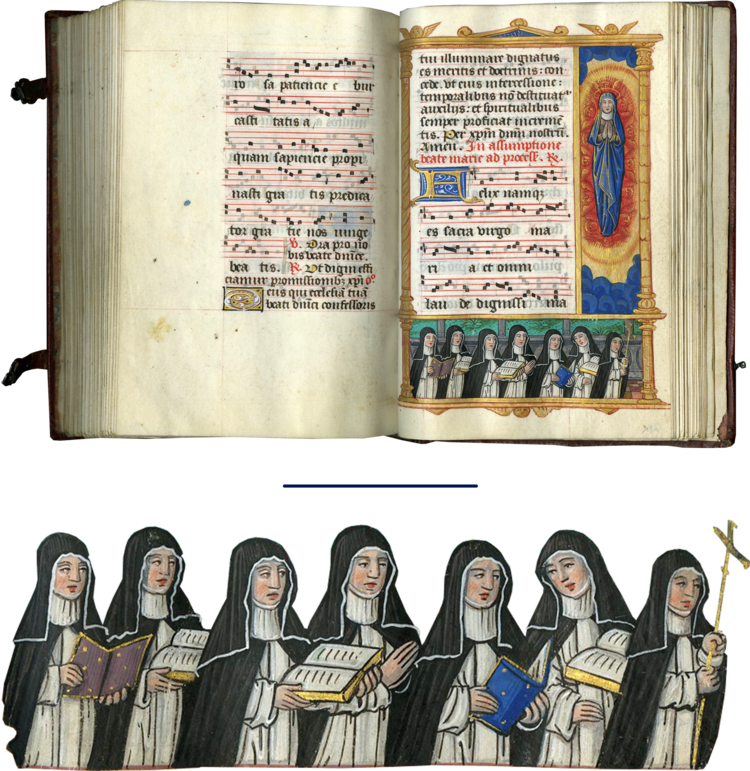 ro sa patiencie e bur
casti tatis a
quam sapiencie propi
nasti gra tis predica
tor gra tie nos iunge
bea tis. ℟. Ut digni effi
ciamur promissionibꝫ xpi
eus qui ecclesiā tuā
beati dn̄ici confessoris
tui illuminare dignatus
es meritis et doctrinis: con
cede. ut eius intercessione:
temporalibus nō destituat᷑
auxiliis: et spiritualibus
semper proficiat increme
tis. Per xpm̄ dn̄m nostrū.
Amen. In assumptione
beate marie ad process. ℟.
elix namqꝫ
es sacra virgo ma
ri a et omni
lau de dignissi ma